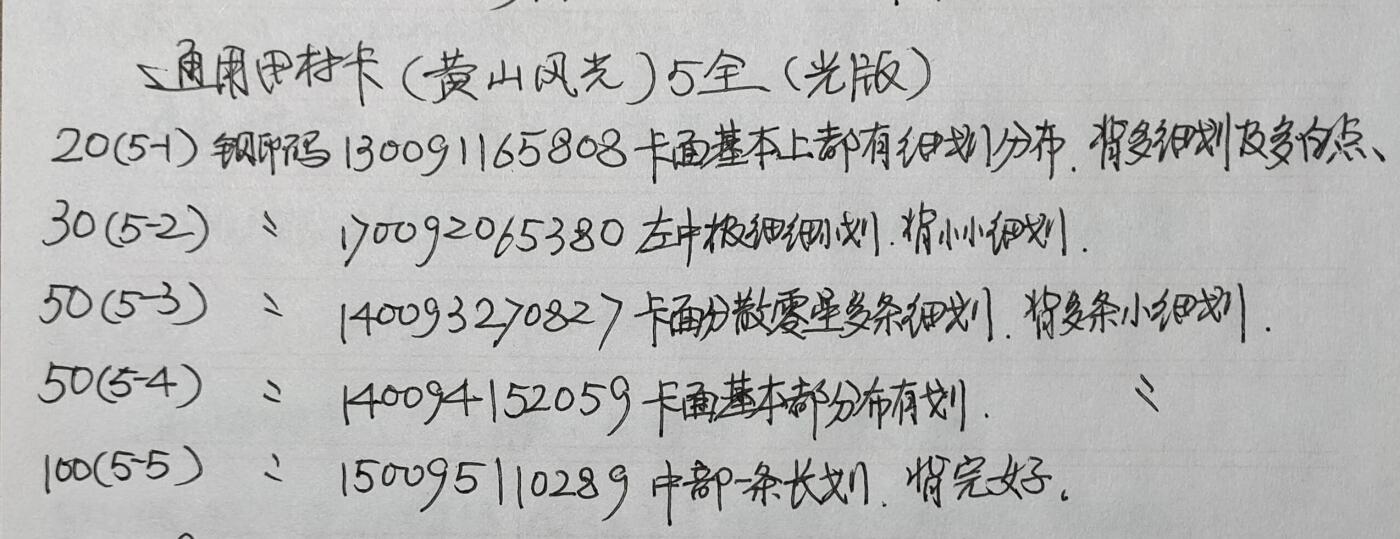 、通用田村卡(黄山风光)5全(光版)
20(5-1) 钢印码130091165808卡面基本上都有细划分布.背多细划及多白点、
30(5-2) 〃 170092065380左中极细细小划.背小小细划.
50(5-3) 〃 140093270827卡面分散零星多条细划.背多条小细划.
50(5-4) 〃 140094152059卡面基本都分布有划. 〃
100(5-5) 〃 150095110289中部一条长划.背完好。